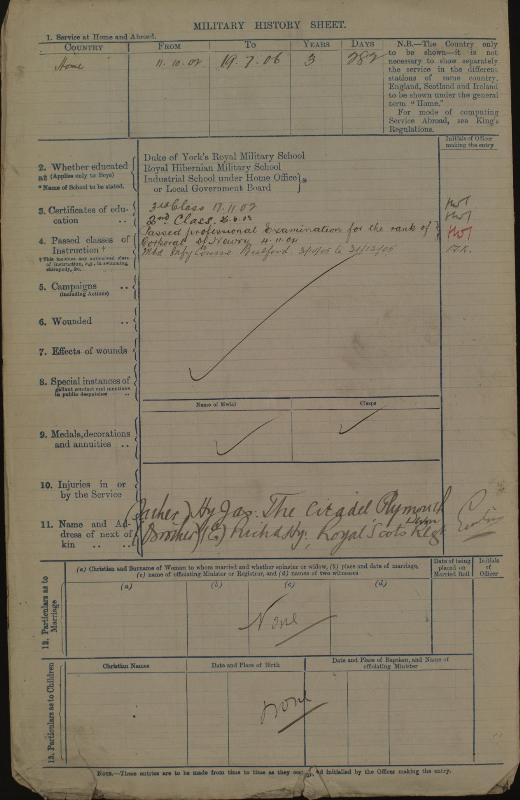 MILITARY HISTORY SHEET.
1. Service at Home and Abroad.
COUNTRY FROM TO YEARS DAYS
Home 11.10.02 19.7.06 3 282
N.B.—The Country only
to be shown—it is not
necessary to show separately
the service in the different
stations of same country,
England, Scotland and Ireland
to be shown under the general
term "Home."
For mode of computing
Service Abroad, see King's
Regulations.
Initials of Officer
making the entry
2. Whether educated
at (Applies only to Boys)
* Name of School to be stated.
Duke of York's Royal Military School
Royal Hibernian Military School
Industrial School under Home Office
or Local Government Board
3. Certificates of edu-
cation ..
3rd Class 17.11.02
2nd Class.
4. Passed classes of
Instruction †
Passed professional Examination for the rank of
Corporal at Newry 4.11.04
Course Bulford to 31/12/05
5. Campaigns ..
(including Actions)
6. Wounded ..
7. Effects of wounds
8. Special instances of
gallant conduct and mentions
in public despatches ..
Name of Medal Clasps
9. Medals, decorations
and annuities ..
10. Injuries in or
by the Service
11. Name and Ad-
dress of next of
kin .. ..
(Father) Hy Jas. The Citadel Plymouth
Devon
(Brother) (E) Richd Hy. Royal Scots Regt
12. Particulars as to
Marriage
(a) Christian and Surname of Woman to whom married and whether spinster or widow, (b) place and date of marriage,
(c) name of officiating Minister or Registrar, and (d) names of two witnesses
Date of being
placed on
Married Roll
Initials
of
Officer
(a) (b) (c) (d)
None
13. Particulars as to Children
Christian Names Date and Place of Birth
Date and Place of Baptism, and Name of
officiating Minister
None
NOTE.—These entries are to be made from time to time as they and initialled by the Officer making the entry.